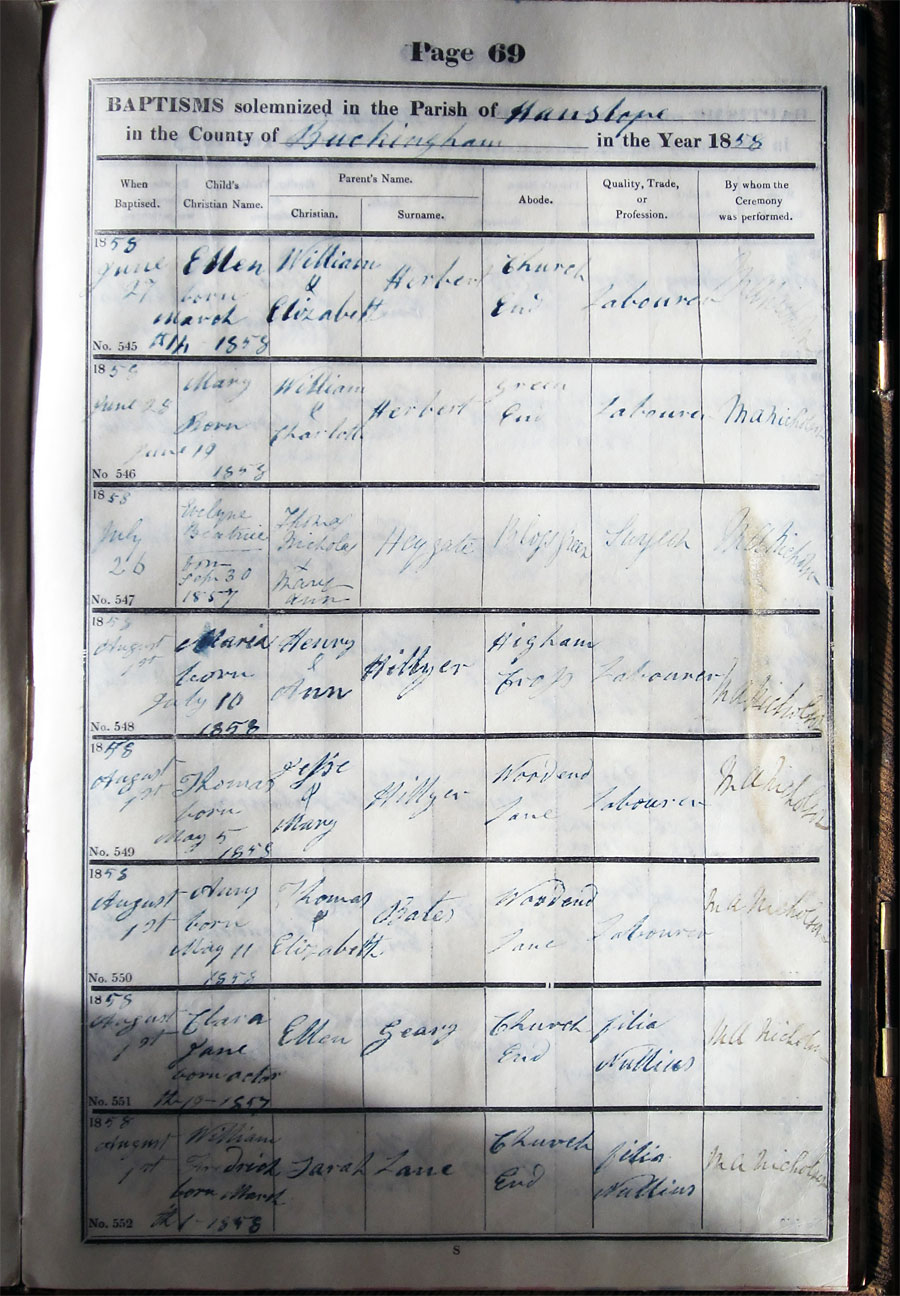 Page 69
BAPTISMS solemnized in the Parish of Hanslope
in the County of Buckingham in the Year 1858
When Baptised.
Child's Christian Name.
Parent's Name.
Christian.
Surname.
Abode.
Quality, Trade, or Profession.
By whom the Ceremony was performed.
1858
June 27
No. 545
Ellen
born
March
1858
William
&
Elizabeth
Herbert
Church
End
Labourer
1858
June 28
No 546
Mary
Born
June 19
1858
William
&
Charlotte
Herbert
Green
End
Labourer
M A Nicholson
1858
July
26
No. 547
Evelyne
Beatrice
born
Sep 30
1857
Thomas
Nicholas
Mary
Ann
Heygate
Green
M A Nicholson
1858
August
1st
No. 548
Maria
born
July 10
1858
Henry
&
Ann
Hillyer
Higham
Cross
Labourer
M A Nicholson
1858
August
1st
No. 549
Thomas
born
May 5
1858
Jesse
&
Mary
Hillyer
Woodend
Lane
Labourer
M A Nicholson
1858
August
1st
No. 550
born
May 11
1858
Thomas
&
Elizabeth
Bates
Woodend
Lane
Labourer
M A Nicholson
1858
August
1st
No. 551
Clara
Jane
born
1857
Ellen
Geary
Church
End
filia
Nullius
M A Nicholson
1858
August
1st
No. 552
William
Fredrick
born March
1858
Sarah
Lane
Church
End
filia
Nullius
M A Nicholson
S